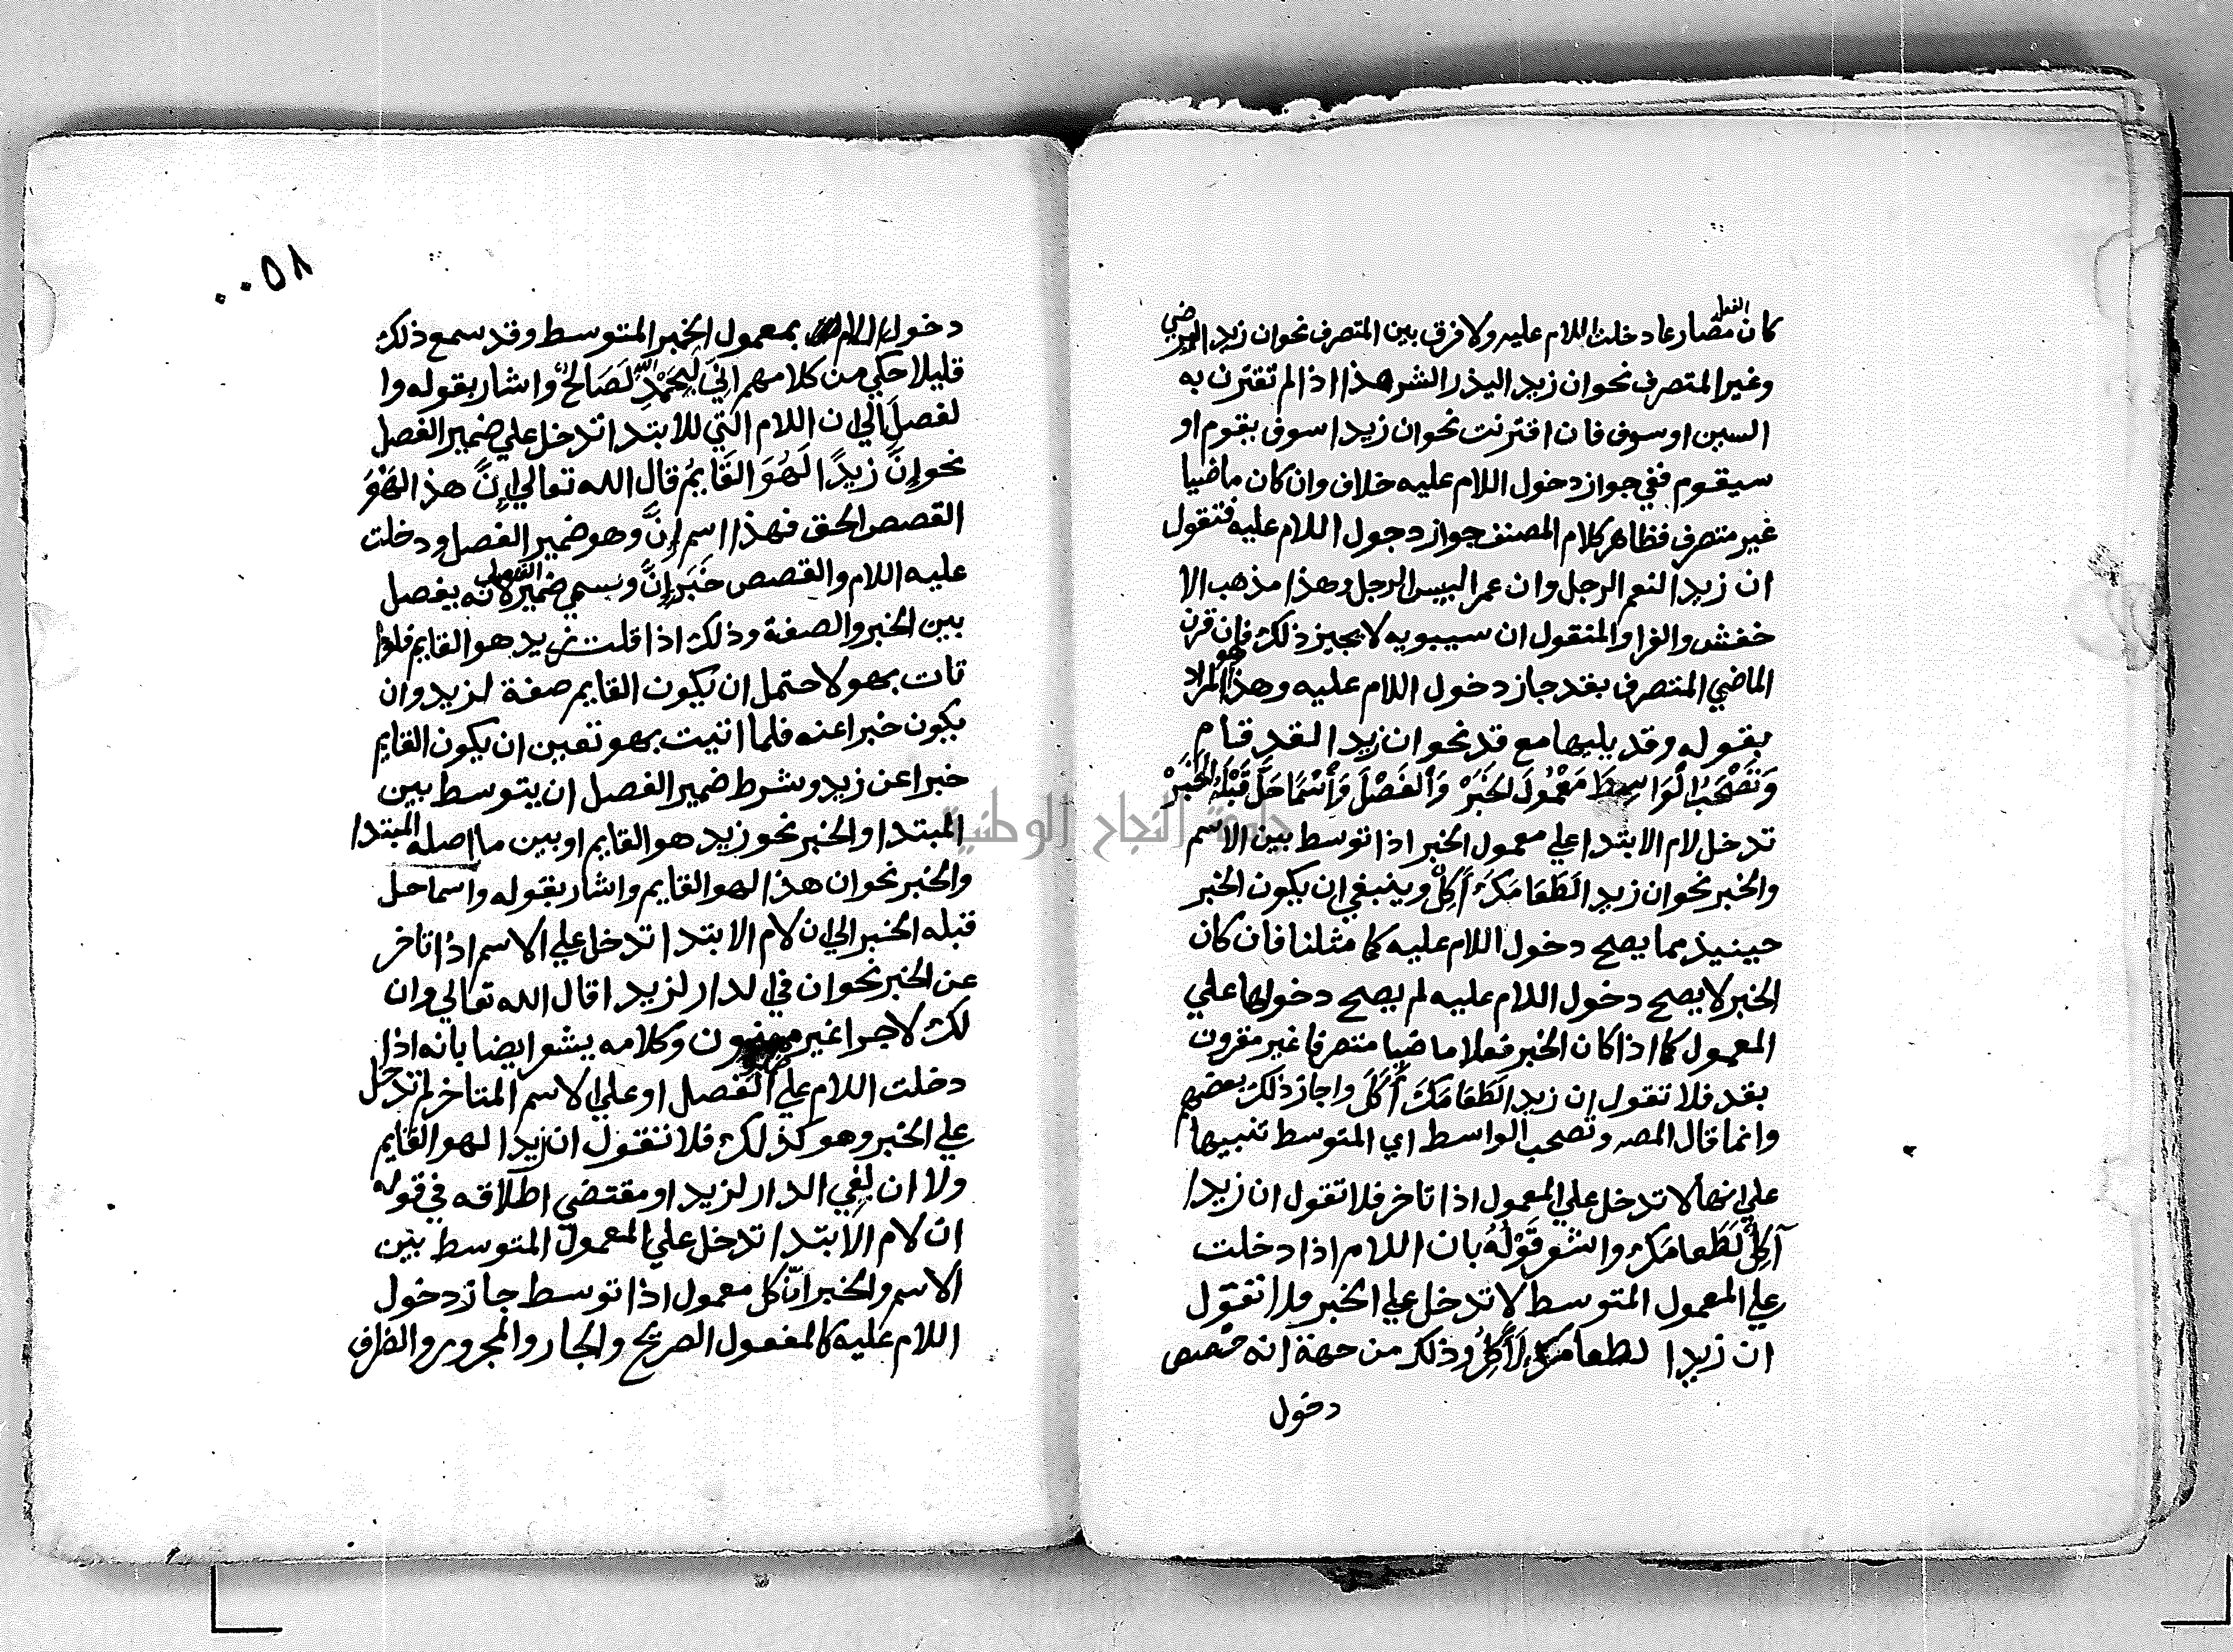 كان الفعل مضارعا دخلت اللام عليه ولا فرق بين المتصرف نحو ان زيد اليرضي
وغير المتصرف نحو ان زيد اليذر الشر هذا اذا لم تقترن به
السين او سوف فان اقترنت نحو ان زيدا سوف يقوم او
سيقوم ففي جواز دخول اللام عليه خلاف وان كان ماضيا
غير متصرف فظاهر كلام المصنف جواز دجول اللام عليه فتقول
ان زيدا لنعم الرجل وان عمرا لبيس الرجل وهذا مذهب الا
خفش والفرا والمنقول ان سيبويه لا يجيز ذلك فان قرن
الماضي المتصرف بقد جاز دخول اللام عليه وهذا هو المراد
بقوله وقد يليها مع قد نحو ان زيدا لقد قام
وَتَصْحَبُ الْوَاسِطَ مَعْمُولَ الخَبَرْ وَالْفَصْلَ وَأسْمًا حَلَّ قَبْلَهُ الْخَبَرْ
تدخل لام الابتدا علي معمول الخبر اذا توسط بين الاسم
والخبر نحو ان زيدا لَطَعَامَكَ آكِلٌ وينبغي ان يكون الخبر
حينيذ مما يصح دخول اللام عليه كما مثلنا فان كان
الخبر لا يصح دخول اللام عليه لم يصح دخولها علي
المعمول كما اذا كان الخبر فعلا ماضيا متصرفا غير مقرون
بقد فلا تقول ان زيدا لَطَعَامَكَ أَكَلَ واجاز ذلك بعضهم
وانما قال المصـ وتصحب الواسط اي المتوسط تنبيها
علي انها لا تدخل علي المعمول اذا تاخر فلا تقول ان زيدا
آكِلٌ لَطَعامَكَ واشعر قَوْلُهُ بان اللام اذا دخلت
علي المعمول المتوسط لا تدخل علي الخبر فلا تقول
ان زيدا لطعامَكَ لَآكِلٌ وذلك من جهة انه خصص
دخول
٠٠٥٨
دخول اللام بمعمول الخبر المتوسط وقد سمع ذلك
قليلا حكي من كلامهم اني لَبِحَمْدِ اللّه لَصَالِحٌ واشار بقوله وا
لفصل الي ان اللام التي للابتدا تدخل علي ضمير الفصل
نحو إنَّ زيدًا لَهُوَ القَايِمُ قال الله تعالي إنَّ هذا لَهْوَ
القصص الحق فهذا اسم إنَّ وهو ضمير الفصل ودخلت
عليه اللام والقصص خَبَرَ إنَّ ويسمي ضمير الفصل لانه يفصل
بين الخبر والصفة وذلك اذا قلت زيد هو القايم فلو لم
تات بهو لاحتمل ان يكون القايم صفة لزيد وان
يكون خبرا عنه فلما اتيت بهو تعين ان يكون القايم
خبرا عن زيد وشرط ضمير الفصل ان يتوسط بين
المبتدا والخبر نحو زيد هو القايم او بين ما اصله المبتدا
والخبر نحو ان هذا لهو القايم واشار بقوله واسما حل
قبله الخبر الي ان لام الابتدا تدخل علي الاسم اذا تاخر
عن الخبر نحو ان في الدار لزيدا قال الله تعالي وان
لك لاجرا غير ممنون وكلامه يشعر ايضا بانه اذا
دخلت اللام علي ضمير الفصل او علي الاسم المتاخر لم تدخل
علي الخبر وهو كذلك فلا تقول ان زيدا لهو القايم
ولا ان لفي الدار لزيدا ومقتضي اطلاقه في قوله
ان لام الابتدا تدخل علي المعمول المتوسط بين
الاسم والخبر انّ كل معمول اذا توسط جاز دخول
اللام عليه كالمفعول الصريح والجار والمجرور والظرف